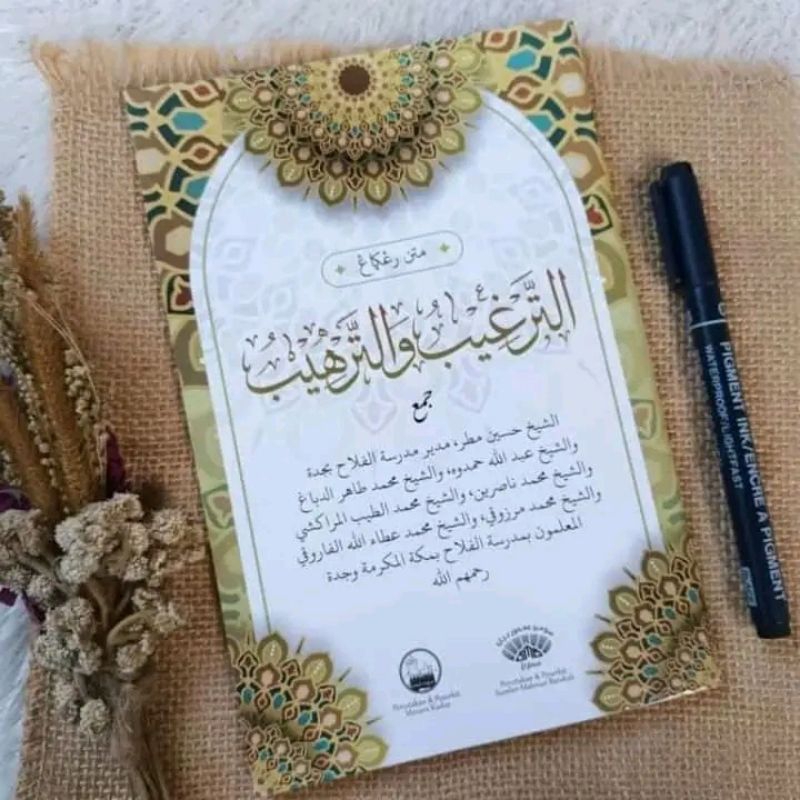 متن رڠکاڠ
التَّرغِيبُ وَالتَّرْهِيبُ
جمع
الشيخ حسين مطر، مدير مدرسة الفلاح بجدة
والشيخ عبد الله حمدوه، والشيخ محمد طاهر الدباغ
والشيخ محمد ناصرين، والشيخ محمد الطيب المراكشي
والشيخ محمد مرزوقي، والشيخ محمد عطاء الله الفاروقي
المعلمون بمدرسة الفلاح بمكة المكرمة وجدة
رحمهم الله
Percetakan & Penerbit
Percetakan & Penerbit
PIGMENT INK/ENCRE A PIGMENT
WATERPROOF/LIGHTFAST